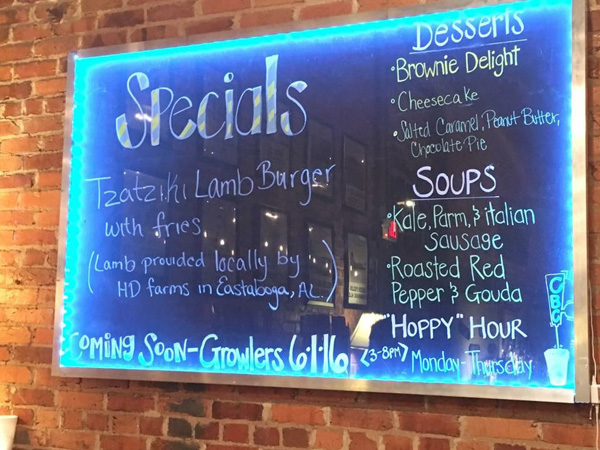 Specials
Tzatziki Lamb Burger
with fries
(Lamb provided locally by
HD farms in Eastaboga, AL.)
Coming Soon-Growlers 6·1·16
Desserts
•Brownie Delight
•Cheesecake
•Salted Caramel, Peanut Butter,
Chocolate Pie
Soups
•Kale, Parm, & italian
Sausage
•Roasted Red
Pepper & Gouda
"Hoppy" Hour
<3-8pm> Monday-Thursday
CBC